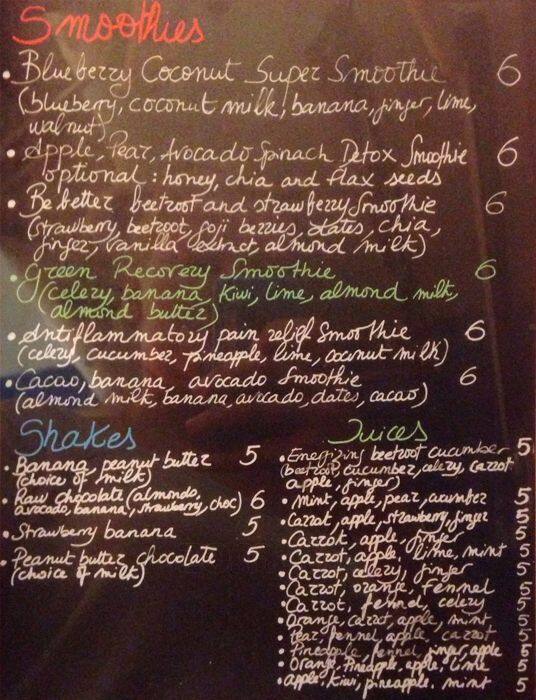 Smoothies
• Blueberry Coconut Super Smoothie 6
(blueberry, coconut milk, banana, ginger, lime,
walnut)
• Apple, Pear, Avocado Spinach Detox Smoothie 6
optional: honey, chia and flax seeds
• Be better beetroot and strawberry Smoothie 6
(strawberry, beetroot, goji berries, dates, chia,
ginger, vanilla extract, almond milk)
• Green Recovery Smoothie 6
(celery, banana, kiwi, lime, almond milk,
almond butter)
• Antiflammatory pain relief Smoothie 6
(celery, cucumber, pineapple, lime, coconut milk)
• Cacao, banana, avocado Smoothie 6
(almond milk, banana, avocado, dates, cacao)
Shakes
• Banana peanut butter 5
(choice of milk)
• Raw chocolate (almondo, 6
avocado, banana, strawberry, choc)
• Strawberry banana 5
• Peanut butter chocolate 5
(choice of milk)
Juices
• Energizing beetroot cucumber 5
(beetroot, cucumber, celery, carrot
apple, ginger)
• Mint, apple, pear, cucumber 5
• Carrot, apple, strawberry, ginger 5
• Carrot, apple, ginger 5
• Carrot, apple, lime, mint 5
• Carrot, celery, ginger 5
• Carrot, orange, fennel 5
• Carrot, fennel, celery 5
• Orange, carrot, apple, mint 5
• Pear, fennel, apple, carrot 5
• Pineapple, fennel, ginger, apple 5
• Orange, Pineapple, apple, lime 5
• apple, kiwi, pineapple, mint 5